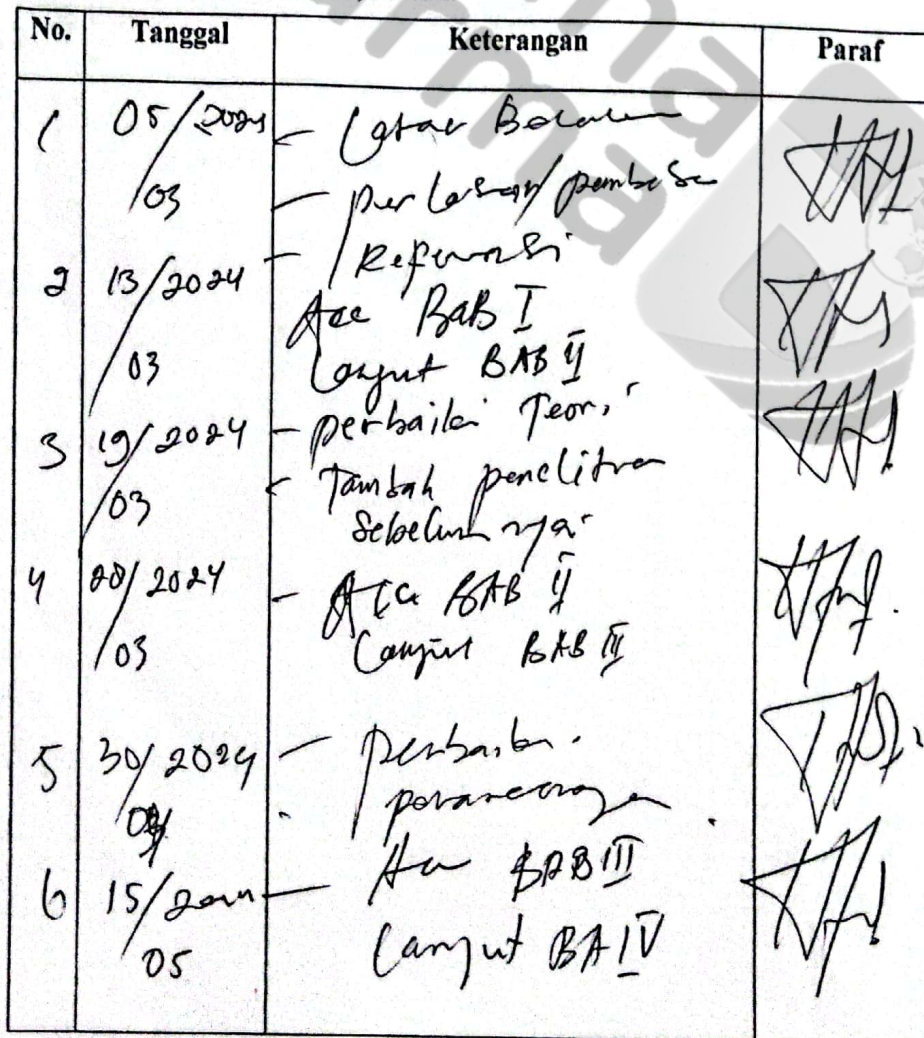 No. Tanggal Keterangan Paraf
1 05/2024 - Latar Belakan
03 - perbasan/pembasa
- Referensi
2 13/2024 Acc BAB I
03 Lanjut BAB II
3 19/2024 - perbaiki Teori
03 - Tambah penelitian
sebelumnya
4 28/2024 - Acc BAB II
03 Lanjut BAB III
5 30/2024 - perbaiki
perancangan
6 15/2024 - Acc BAB III
05 Lanjut BA IV